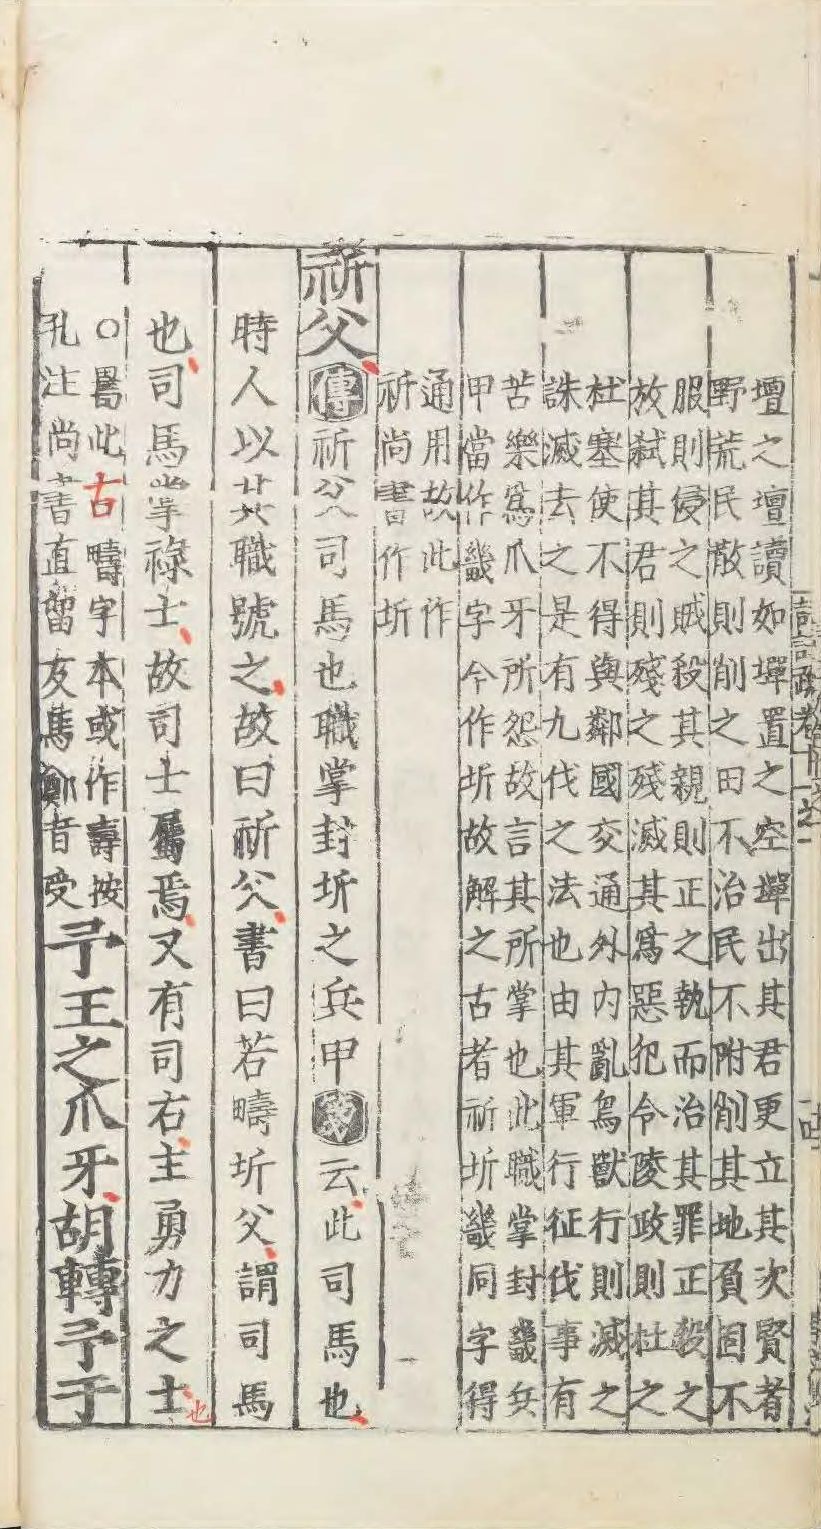 壇之壇讀如墠置之空墠出其君更立其次賢者
野荒民散則削之田不治民不附削其地負固不
服則侵之賊殺其親則正之執而治其罪正殺之
放弑其君則殘之殘滅其爲惡犯令陵政則杜之
杜塞使不得與鄰國交通外内亂鳥獸行則滅之
誅滅去之是有九伐之法也由其軍行征伐事有
苦樂爲爪牙所怨故言其所掌也此職掌封畿兵
甲當作畿字今作圻故解之古者祈圻畿同字得
通用故此作
祈尚書作圻
祈父傳祈父司馬也職掌封圻之兵甲箋云此司馬也
時人以其職號之故曰祈父書曰若疇圻父謂司馬
也司馬掌祿士故司士屬焉又有司右主勇力之士也
○㽬此古疇字本或作壽按
孔注尚書直留反馬鄭音受
予王之爪牙胡轉予于